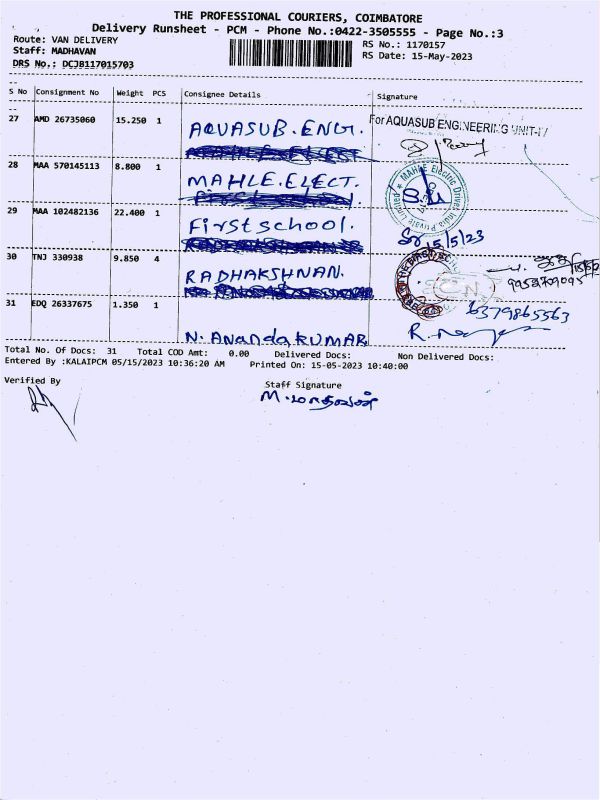 THE PROFESSIONAL COURIERS, COIMBATORE
Delivery Runsheet - PCM - Phone No.:0422-3505555 - Page No.:3
Route: VAN DELIVERY RS No.: 1170157
Staff: MADHAVAN RS Date: 15-May-2023
DRS No.: DCJB117015703
S No Consignment No Weight PCS Consignee Details Signature
27 AMD 26735060 15.250 1 AQUASUB.ENGI. For AQUASUB ENGINEERING UNIT-IV
28 MAA 570145113 8.800 1 MAHLE.ELECT. MAHLE Electric Drives India Private Limited
29 MAA 102482136 22.400 1 First school. 15/5/23
30 TNJ 330938 9.850 4 RADHAKSHNAN. 9952709095
31 EDQ 26337675 1.350 1 N. Ananda KUMAR 6379865563
Total No. Of Docs: 31 Total COD Amt: 0.00 Delivered Docs: Non Delivered Docs:
Entered By :KALAIPCM 05/15/2023 10:36:20 AM Printed On: 15-05-2023 10:40:00
Verified By Staff Signature
M.மாதவன்